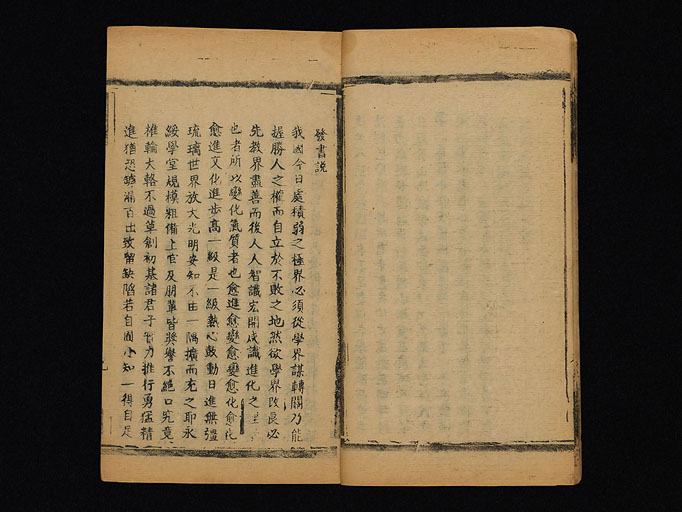 發書説
我國今日處積弱之極界必須從學界謀轉關乃能
握勝人之權而自立於不敗之地然欲學界改良必
先教界盡善而後人人智識宏開成識進化之
也者所以變化氣質者也愈進愈變愈變愈化愈化
愈進文化進步高一級是一級熱心鼓動日進無疆
琉璃世界放大光明安知不由一隅擴而充之耶永
綏學室規模粗備上官及朋輩皆獎譽不絕口究竟
椎輪大輅不過草創初基諸君子力推行勇猛精
進猶恐漏百出致留缺陷若自囿小知一得自足